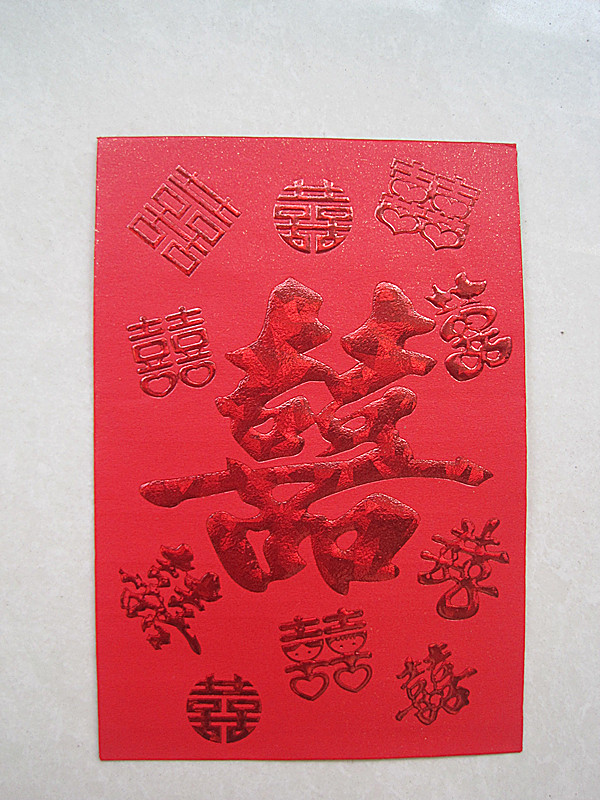 囍 囍 囍
囍 囍
囍
囍 囍
囍 囍
囍